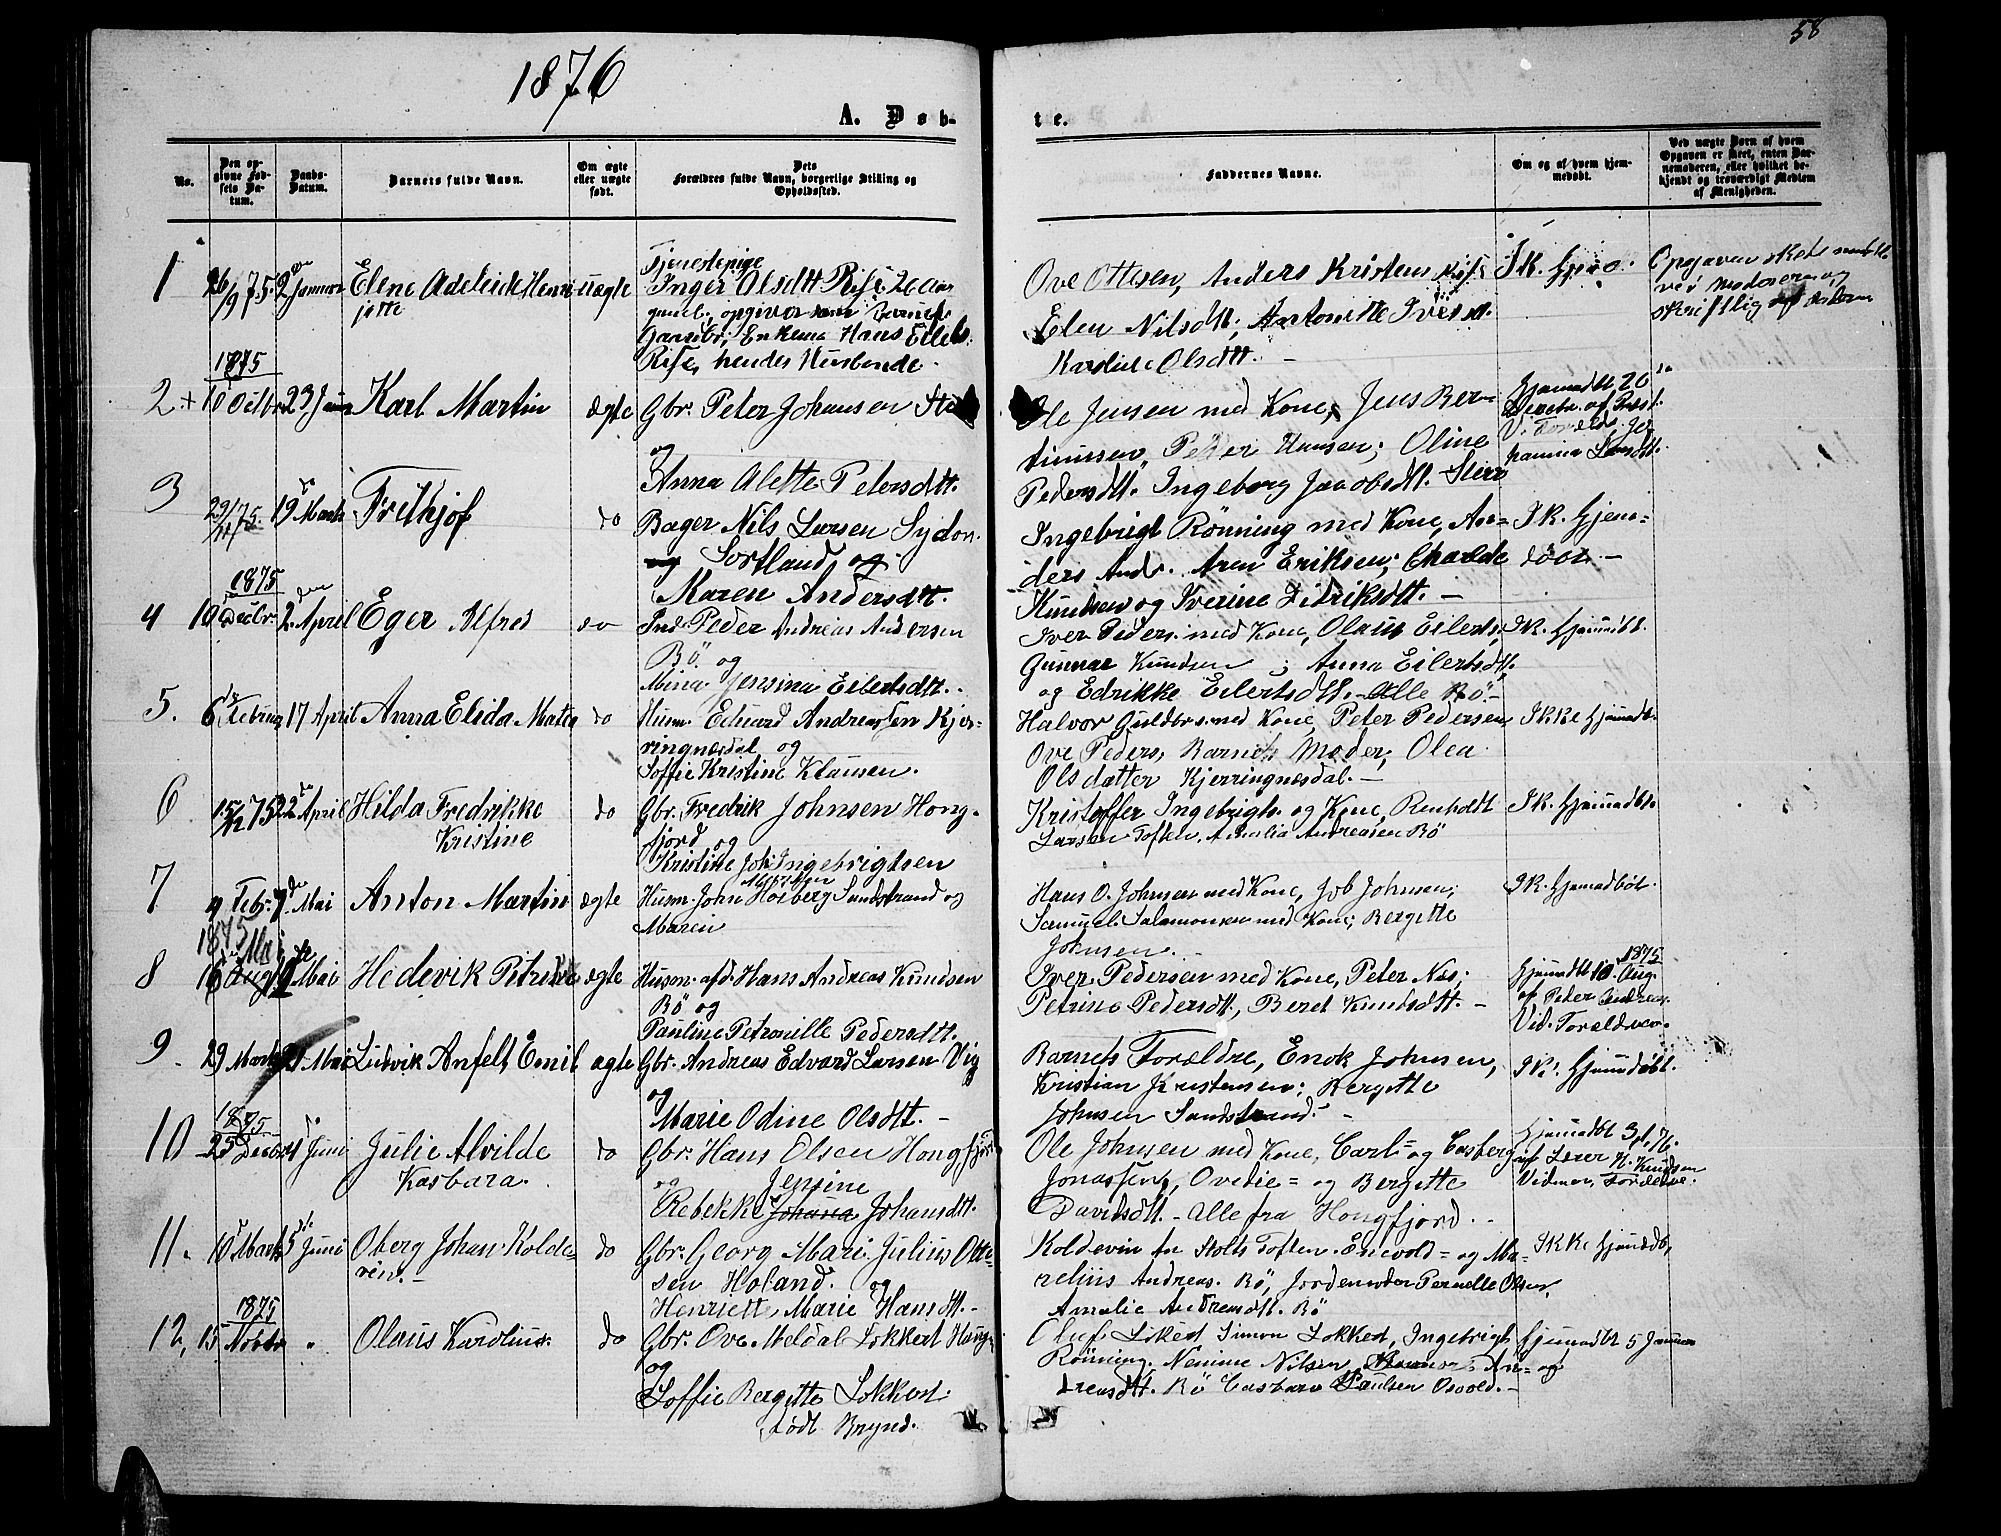 1876
58
A. Døb-
te.
No.
Den op-
givne Fød-
sels Da-
tum.
Daabs-
Datum.
Barnets fulde Navn.
Om ægte
eller uægte
født.
Dets
Forældres fulde Navn, borgerlige Stilling og
Opholdssted.
Faddernes Navne.
Om og af hvem hjem-
medøbt.
Ved uægte Børn af hvem
Opgaven er skeet, enten Bar-
nemoderen, eller hvilket be-
kjendt og troværdigt Medlem
af Menigheden.
1 26/9 75. 2den Januar Elene Adeleide Henri-
jette
uægte
Tjenestepige
Inger Olsdtt Rise 26 Aar
gmel., opgiver som Barnef.
Gaardbr., Enkema Hans Eilerts.
Rise, hendes Husbonde.
Ove Ottesen, Anders Kristens. Rise
Elen Nilsdtt; Antonitte Ivers d.
Kardine Olsdtt. –
Ik. Hjmd.
Opgaven skete mundtl.
ved Moderen og
skriftlig
1875
2 + 10 Octbr. 23 Janu Karl Martin ægte Gbr. Peter Johansen
og
Anna Alette Petersdtt.
Ole Jensen med Kone, Jens Ber-
tinussen, Peder Hansen; Oline
Pedersdtt. Ingeborg Jacobsdtt.
Hjemmedbt. 26
Decbr. af
V. Foræld.
3 29/11 75. 19de Marts Frithjof do Bager Nils Larsen Sydon.
Sortland og
Karen Andersdtt.
Ingebrigt Rönning med Kone, An-
ders Andr. Aren Eriksen; Charlde
Knudsen og Iverine Didriksdtt. –
Ik. Hjem-
døbt. –
1875
4 10 Decbr. 2den April Eger Alfred do Ind. Peder Andreas Andersen
Bö. og
Mina Jensina Eilertsdtt.
Iver Peders. med Kone, Olaus Eilerts;
Gunnar Knudsen ; Anna Eilertsdtt,
og Edrikke Eilertsdtt. – Alle Bö –
Ik. Hjemmdbt.
5. 6te Februar 17 April Anna Elida Matea do Husm. Eduard Andreassen Kjer-
ringnesdal og
Soffie Kristine Klausen.
Halvor Guldbrs. med Kone, Peter Pedersen
Ove Peders, Barnets Moder, Olea
Olsdatter Kjerringnesdal. –
Ikke Hjemmdbt.
6 15/12 75 22de April Hilda Fredrikke
Kristine
do Gbr. Fredrik Johnsen Hong-
fjord og
Kristine Joh. Ingebrigtsen
Kristoffer Ingebrigts. og Kone, Renholdt
Larsen Toften, Amalia Andreasen Bö
Ik. Hjemmdbt.
7 4 Febr. 7de Mai Anton Martin ægte Husm. John Hosberg Sandstrand og
Maren
Hans O. Johnsen med Kone, Job Johnsen;
Samuel Salamonsen med Kone; Bergitte
Johnsen.
Ik. Hjemmdbt.
1875
Mai
8 16 Aug Mai Hedevik Petrine ægte Husm. afd. Hans Andreas Knudsen
Bö og
Pauline Petronille Pedersdtt.
Iver Pedersen med Kone, Peter Nas;
Petrine Pedersdtt, Beret Knudsdtt. –
1875
Hjemmdbt 10 Aug.
af Peder Andreas.
Vid. Forældrene.
9. 29 Marts 21 Mai Ludvik Anfelt Emil ægte Gbr. Andreas Edvard Larsen Vig
og
Marie Odine Olsdtt. –
Barnets Forældre, Enok Johnsen,
Kristian Kristensen; Bergitte
Johnsen Sandstrand. –
Ik. Hjemmdbt.
1875
10 25 Decbr. Juni Julie Alvilde
Kasbara.
do Gbr. Hans Olsen Hongfjord
og Jensine
Rebekke Johana Johansdtt.
Ole Johnsen med Kone, Carl = og Casberg
Jonassen, Ovedie = og Bergitte
Davidsdtt. – Alle fra Hongfjord. –
Hjemmdbt
af Lærer N. Knudsen
Vidner, Forældre.
11. 10 Marts 5te Juni Oberg Johan Kolde-
vin. –
do Gbr. Georg Mari. Julius Otte-
sen Holand. og
Henriette Marie Hansdtt. –
Koldevin fra Stolts Toften. Enevold = og Ma-
relius Andreas. Bö, Jordemoder Pernelle Olsen,
Amalie Andreasdtt. Bö
Ikke Hjemmdb,
1875
12, 15 Novbr " Olaus Karolius. do Gbr. Ove Meldal Lokked Hong
og
Soffie Bergitte Lokked.
født Brynd.
Oluf Lokked Simon Lokked, Ingebrigt
Rönning. Nemine Nilsen, An= og
dreasdtt. Bö Casbara Paulsen Osvold. –
Hjemmdbt 5 Januar